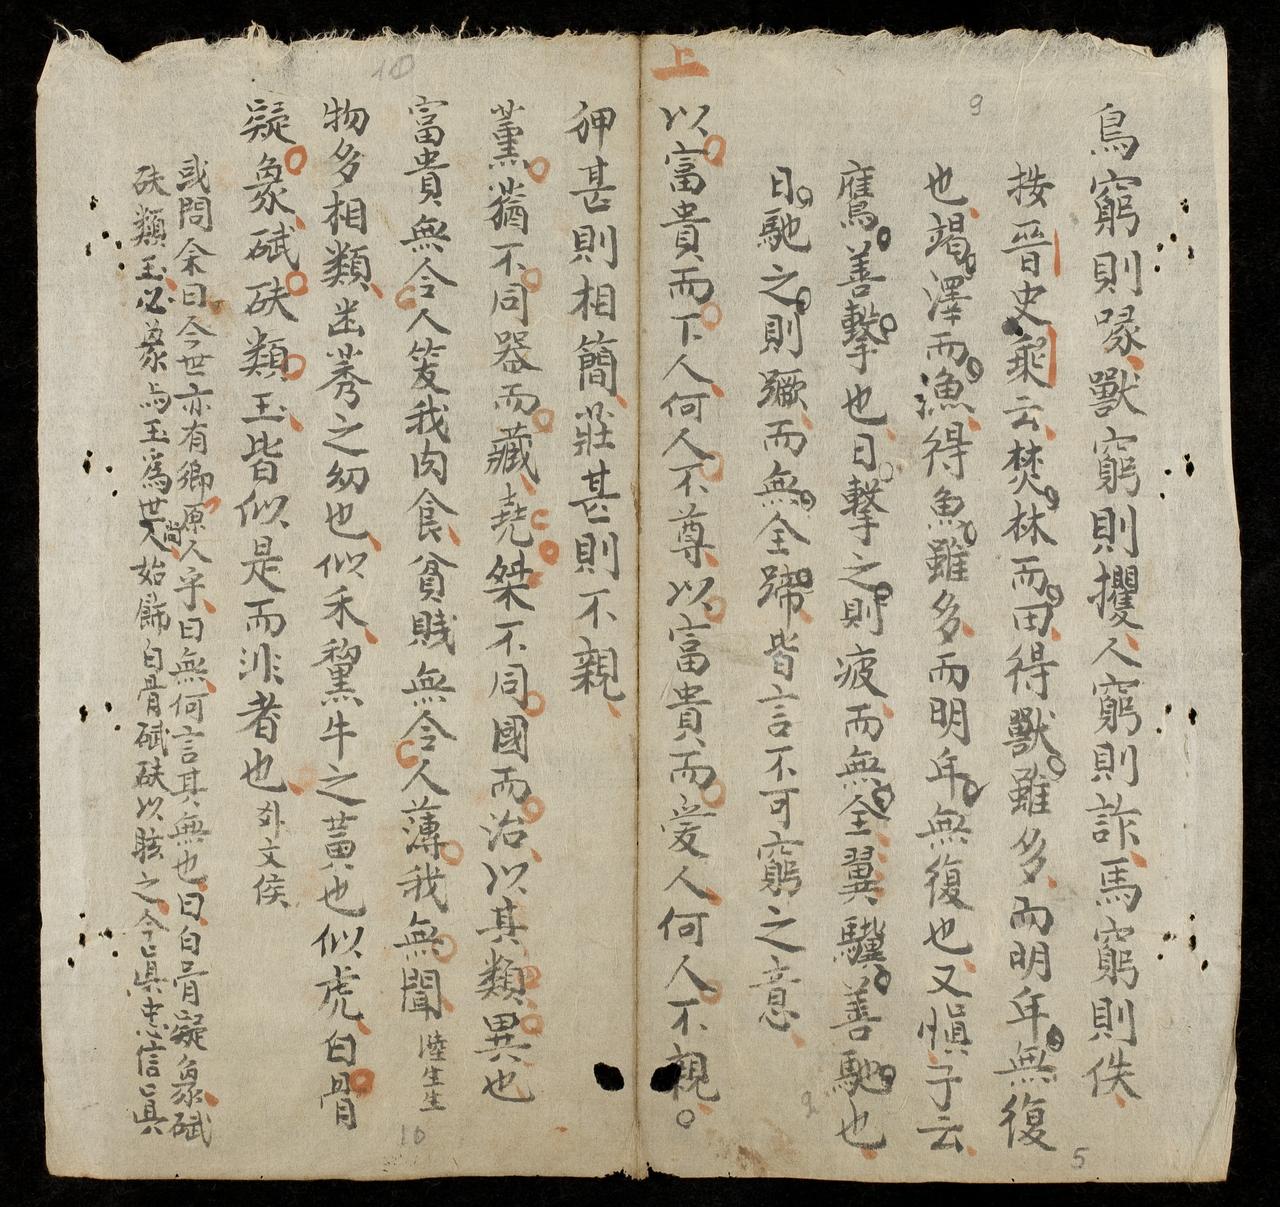 鳥窮則啄獸窮則攫人窮則詐馬窮則佚
按晉史乘云焚林而田得獸雖多而明年無復
也竭澤而漁得魚雖多而明年無復也又慎子云
鷹善擊也日擊之則疲而無全翼驥善馳也
日馳之則蹶而無全蹄皆言不可窮之意
上
以富貴而下人何人不尊以富貴而愛人何人不親
狎甚則相簡莊甚則不親
薰蕕不同器而藏堯桀不同國而治以其類異也
富貴無令人笑我肉食貧賤無令人薄我無聞 陸生生
物多相類幽莠之幼也似禾黧牛之黃也似虎白骨
疑象碔砆類玉皆似是而非者也 外文侯
或問余曰今世亦有鄉原人乎曰無何言其無也曰白骨疑象碔
砆類玉必象與玉為世人尚始飾白骨碔砆以眩之今真忠信真
9
10
5
9
10